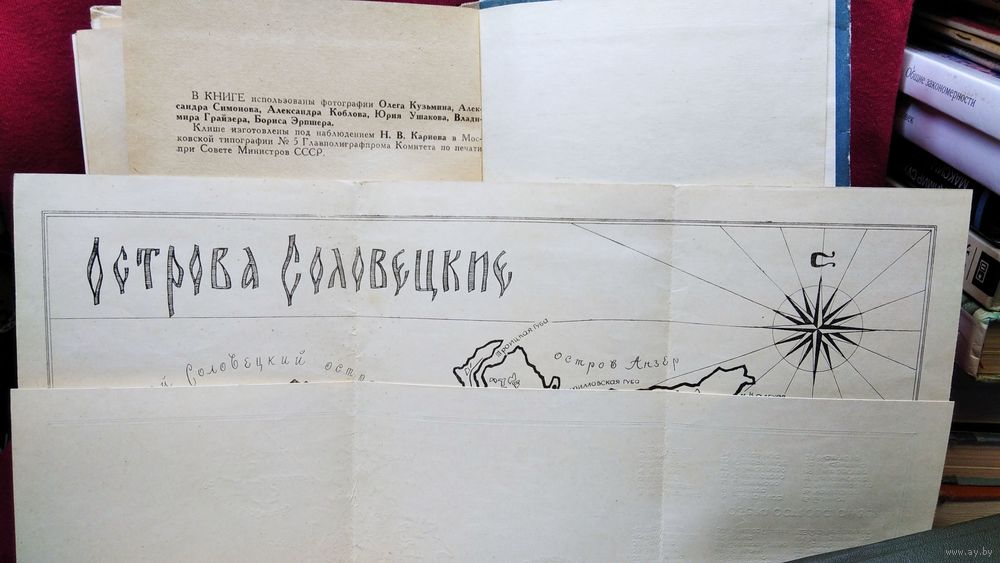 В КНИГЕ использованы фотографии Олега Кузьмина, Алек-
сандра Симонова, Александра Коблова, Юрия Ушакова, Влади-
мира Грайзера, Бориса Эрпшера.
Клише изготовлены под наблюдением Н. В. Кариова в Мос-
ковской типографии № 5 Главполиграфпрома Комитета по печати
при Совете Министров СССР.
Общие закономерности
ОСТРОВА СОЛОВЕЦКИЕ
Троицкая губа
остров Анзер
Соловецкий остр
www.ay.by